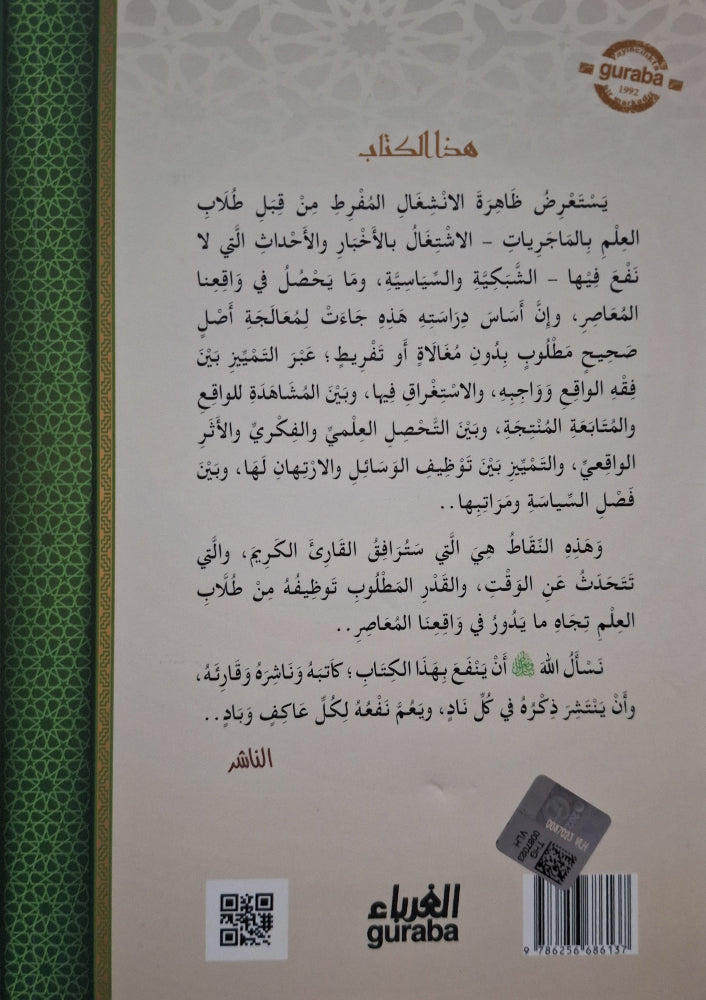 yayıncılıkta
guraba
1992
bir markadır
هذا الكتاب
يَسْتَعْرِضُ ظَاهِرَةَ الانْشِغَالِ المُفْرِطِ مِنْ قِبَلِ طُلَابِ
العِلْمِ بِالمَاجَرِياتِ - الاشْتِغَالُ بالأَخْبَارِ والأَحْداثِ الَّتي لا
نَفْعَ فِيْها - الشَّبَكِيَّةِ والسِّيَاسِيَّةِ، ومَا يَحْصُلُ في وَاقِعِنا
المُعَاصِرِ، وإِنَّ أَسَاسَ دِرَاستِهِ هَذِهِ جَاءَتْ لِمُعَالَجَةِ أَصْلٍ
صَحِيحٍ مَطْلُوبٍ بِدُونِ مُغَالَاةٍ أَو تَفْرِيطٍ؛ عَبْرَ التَمْيِيزِ بَيْنَ
فِقْهِ الواقِعِ وَوَاجِبِهِ، والاسْتِغْراقِ فِيها، وبَيْنَ المُشَاهَدَةِ للواقِعِ
والمُتَابَعَةِ المُنْتجَةِ، وبَيْنَ التَّحْصلِ العِلْميِّ والفِكْريِّ والأَثَرِ
الواقِعيِّ، والتَمْيِيْزِ بَيْنَ تَوْظِيفِ الوَسَائِلِ والارْتِهانِ لَهَا، وبَيْنَ
فَصْلِ السِّيَاسَةِ ومَرَاتِبِها..
وَهَذِهِ النِّقَاطُ هِيَ الَّتي سَتُرَافِقُ القَارِئَ الكَرِيمَ، والَّتي
تَتَحَدَثُ عَنِ الوَقْتِ، والقَدْرِ المَطْلُوبِ تَوظِيفُهُ مِنْ طُلَّابِ
العِلْمِ تِجَاهِ ما يَدُورُ في وَاقِعِنَا المُعَاصِرِ..
نَسْأَلُ اللهَ ﷻ أَنْ يَنْفَعَ بِهَذَا الكِتَابِ؛ كَاتبَهُ وَنَاشِرَهُ وَقَارِئَهُ،
وأَنْ يَنْتَشِرَ ذِكْرُهُ في كُلِّ نَادٍ، ويَعُمَّ نَفْعُهُ لِكُلِّ عَاكِفٍ وَبَادٍ..
الناشر
0087023 VLH
THG
0087023
VLH
الغرباء
guraba
9 786256 686137